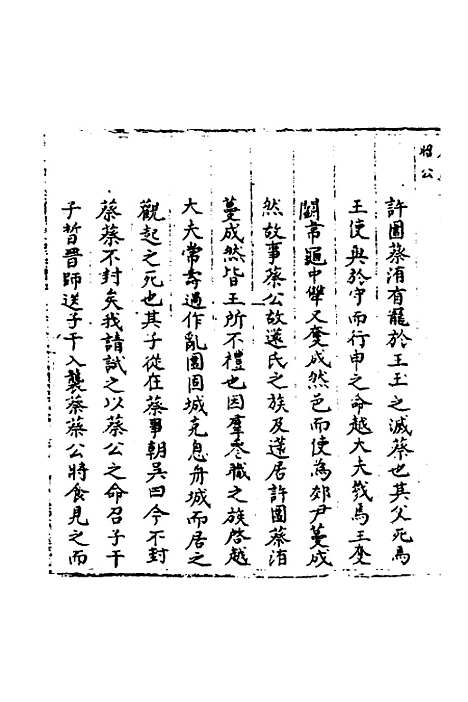 將公
許圍蔡洧有寵於王王之滅蔡也其父死焉
王使與於守而行申之㑹越大夫戮焉王奪
鬬韋龜中犫又奪成然邑而使為郊尹蔓成
然故事蔡公故薳氏之族及薳居許圍蔡洧
蔓成然皆王所不禮也因羣喪職之族啓越
大夫常壽過作亂圍固城克息舟城而居之
觀起之死也其子從在蔡事朝吳曰今不封
蔡蔡不封矣我請試之以蔡公之命召子干
子晳晉師送子干入襲蔡蔡公將食見之而